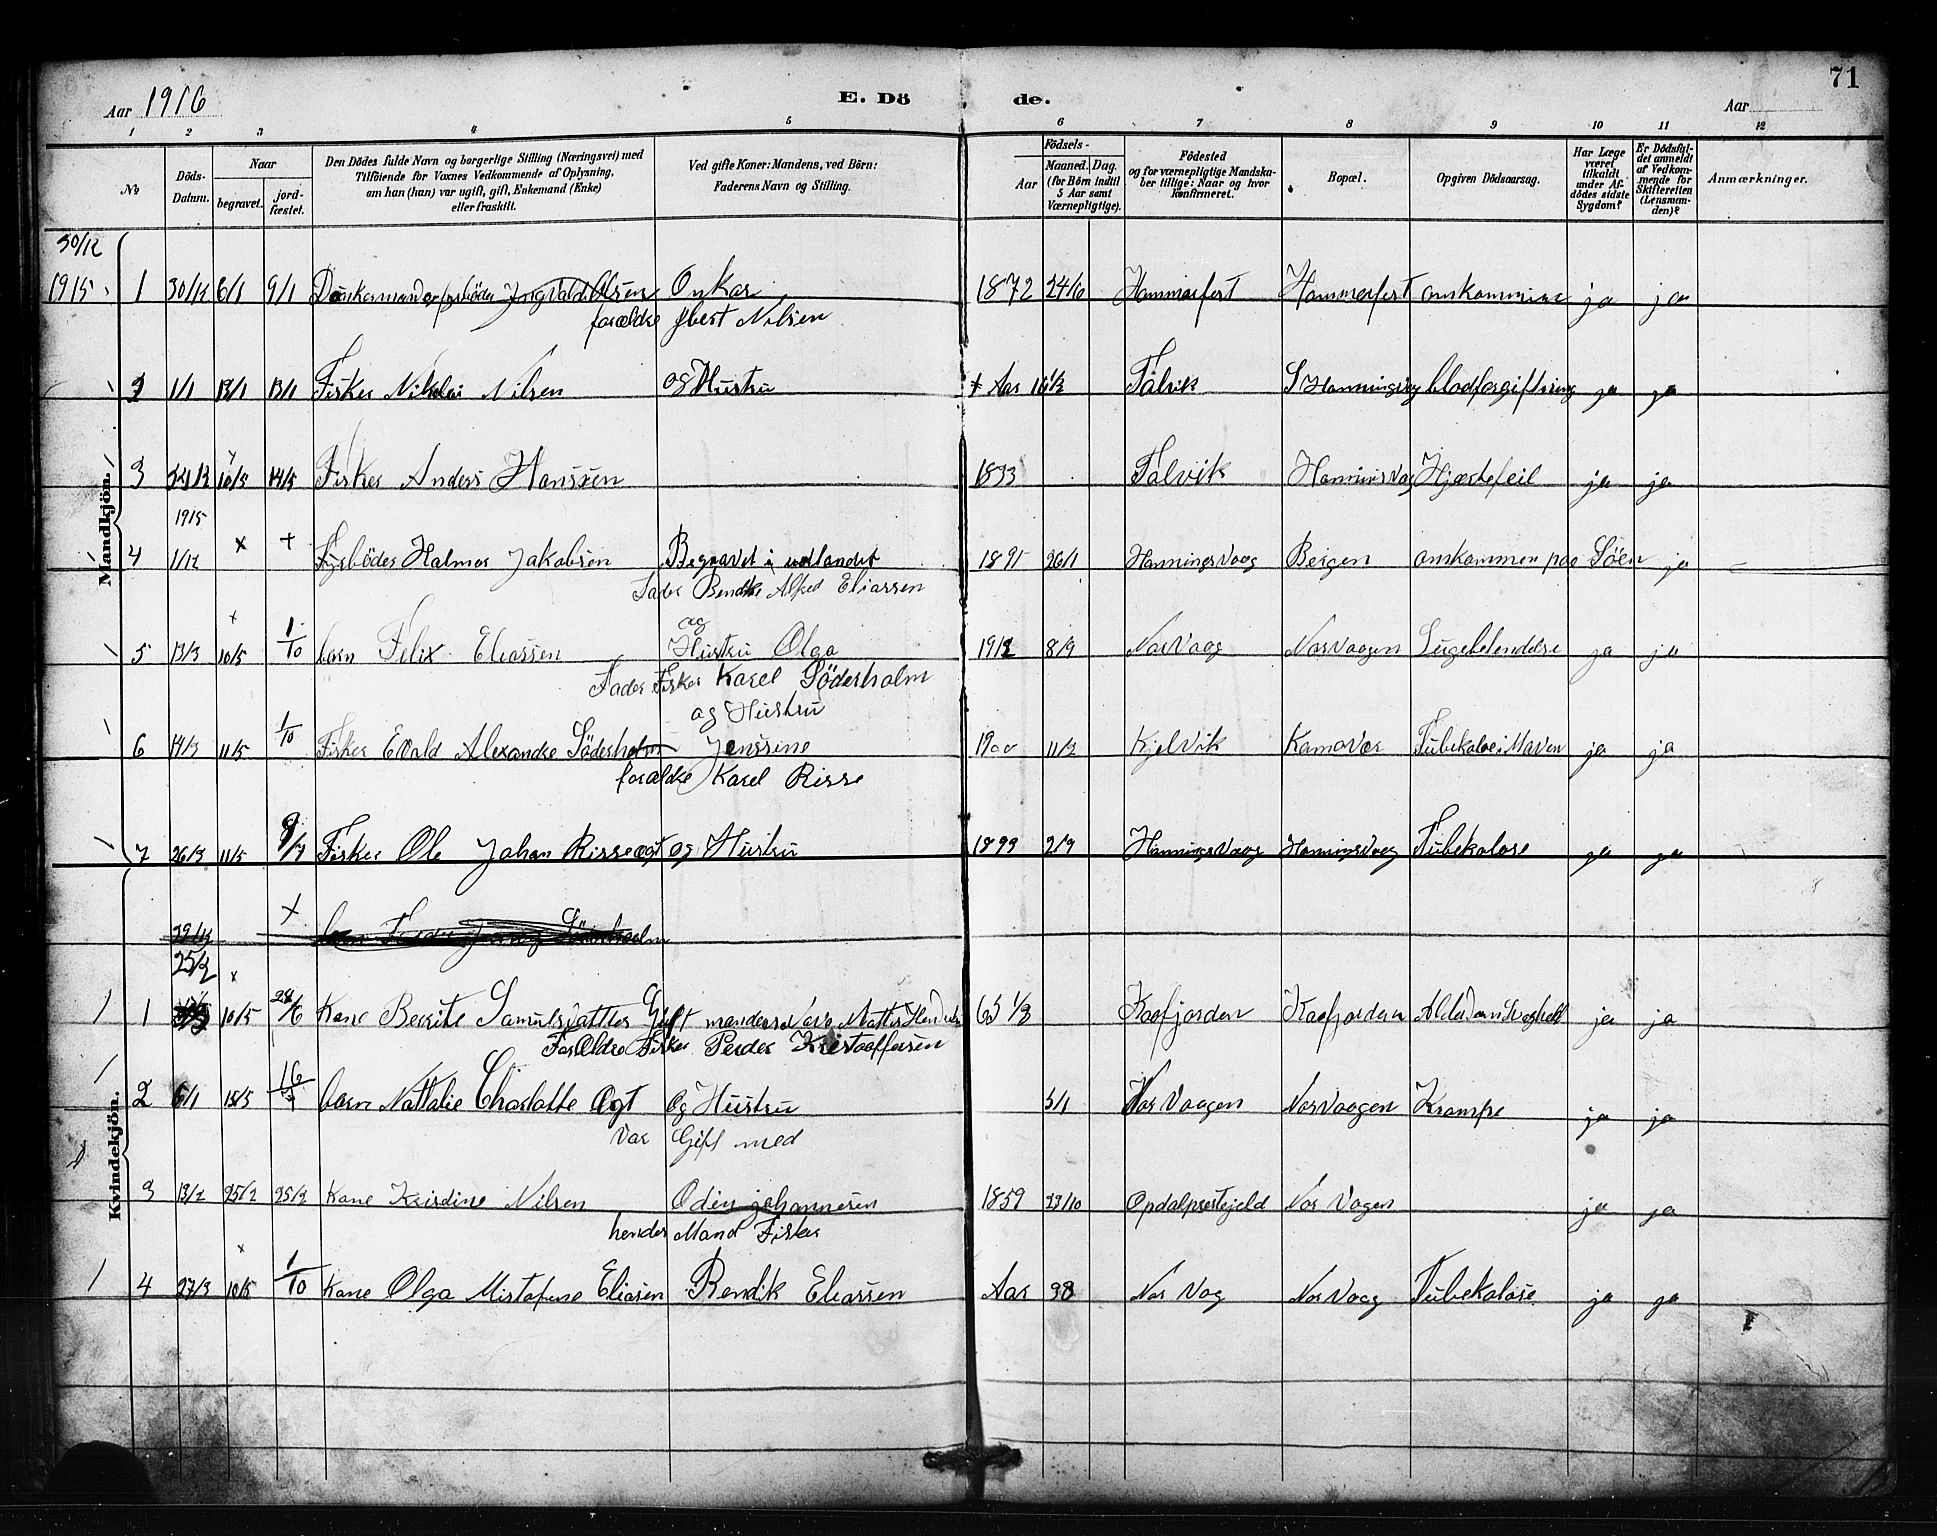 71
Aar 1916 E. Dö de. Aar
1 2 3 4 5 6 7 8 9 10 11 12
No
Döds-Datum.
Naar
begravet.
jord-fæstet.
Den Dödes fulde Navn og borgerlige Stilling (Næringsvei) med
Tilföiende for Voxnes Vedkommende af Oplysning,
om han (hun) var ugift, gift, Enkemand (Enke)
eller fraskilt.
Ved gifte Koner: Mandens, ved Börn:
Faderens Navn og Stilling.
Födsels-
Aar
Maaned. Dag.
(for Börn indtil
5 Aar samt
Værnepligtige).
Födested
og for værnepligtige Mandska-
ber tillige: Naar og hvor
Konfirmeret.
Bopæl.
Opgiven Dödsaarsag.
Har Læge
været
tilkaldt
under Af-
dödes sidste
Sygdom?
Er Dödsfal-
det anmeldt
af Vedkom-
mende for
Skifteretten
(Lensman-
den)?
Anmærkninger.
Mandkjön.
30/12
1915 1 30/12 6/1 9/1 Ingvald Olsen 1872 24/6 Hammerfest Hammerfest ja ja
forældre Nilsen
2 1/1 13/1 13/1 Fisker Nikolai Nilsen og Hustru Aar Talvik blodforgiftning ja ja
3 10/5 14/5 Fisker Anders Hanssen 1833 Talvik HonningsVag Hjærtefeil ja ja
1915
4 1/12 x + Halmar Jakobsen Begravet i udlandet 1891 26/1 HonningsVaag Bergen omkommen paa Söen ja
Fader Bendik Alfred Eliassen
x og
5 13/3 10/5 1/10 barn Felix Eliassen Hustru Olga 1912 8/9 NorVaag NorVaagen ja ja
Fader Fisker Karel Söderholm
og Hustru
6 14/3 11/5 1/10 Fisker Evald Alexandre Söderholm Jenssine 1900 11/3 Kjelvik KamøVær ja ja
forældre Karel Risse
7 26/3 11/5 9/7 Fisker Ole Johan Risse ogt og Hustru 1899 2/9 HonningsVaag HonningsVaag Tubekolose ja ja
Kvindekjön.
+
29/12 barn Söderholm
25/2 x
1 10/5 24/6 Kone Berrite Samulsdatter Gift 65 1/2 Kaafjorden Kaafjorden ja ja
Forældre Fisker Peder Kristoaffersen
2 6/1 15/5 barn Nattalie Charlotte Ogt Og Hustru 5/1 NorVaagen NorVaagen Krampe ja ja
Var Gift med
3 13/2 25/2 25/2 Kone Kristine Nilsen Odin johannesen 1859 23/10 Opdalprestejeld Nor Vagen ja ja
hendes Mand Fisker
x
4 27/3 10/5 1/10 Kone Olga Eliasen Bendik Eliassen Aar 38 Nor Vag NorVaag Tubekolose ja ja